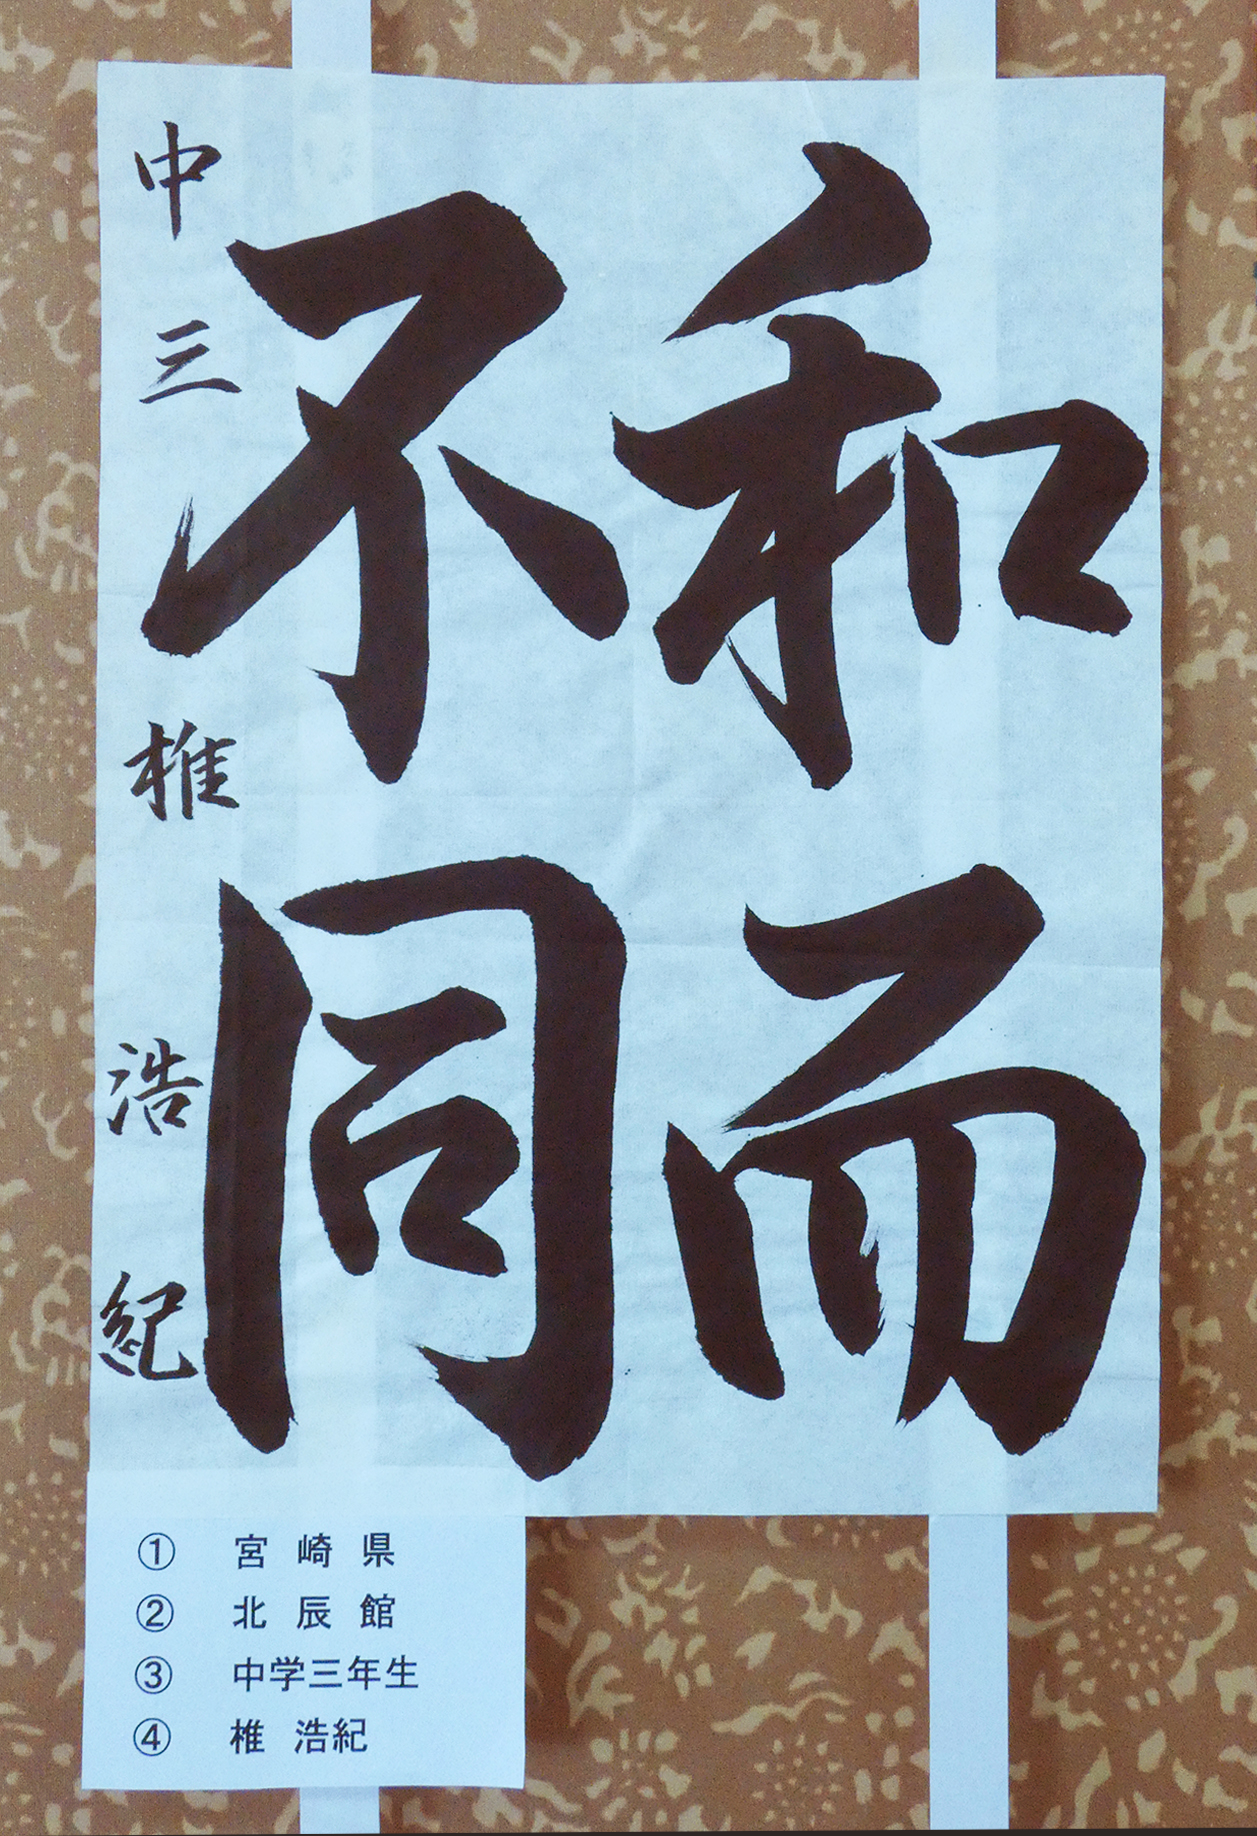 和而
不同
中三 椎 浩紀
① 宮崎県
② 北辰館
③ 中学三年生
④ 椎 浩紀